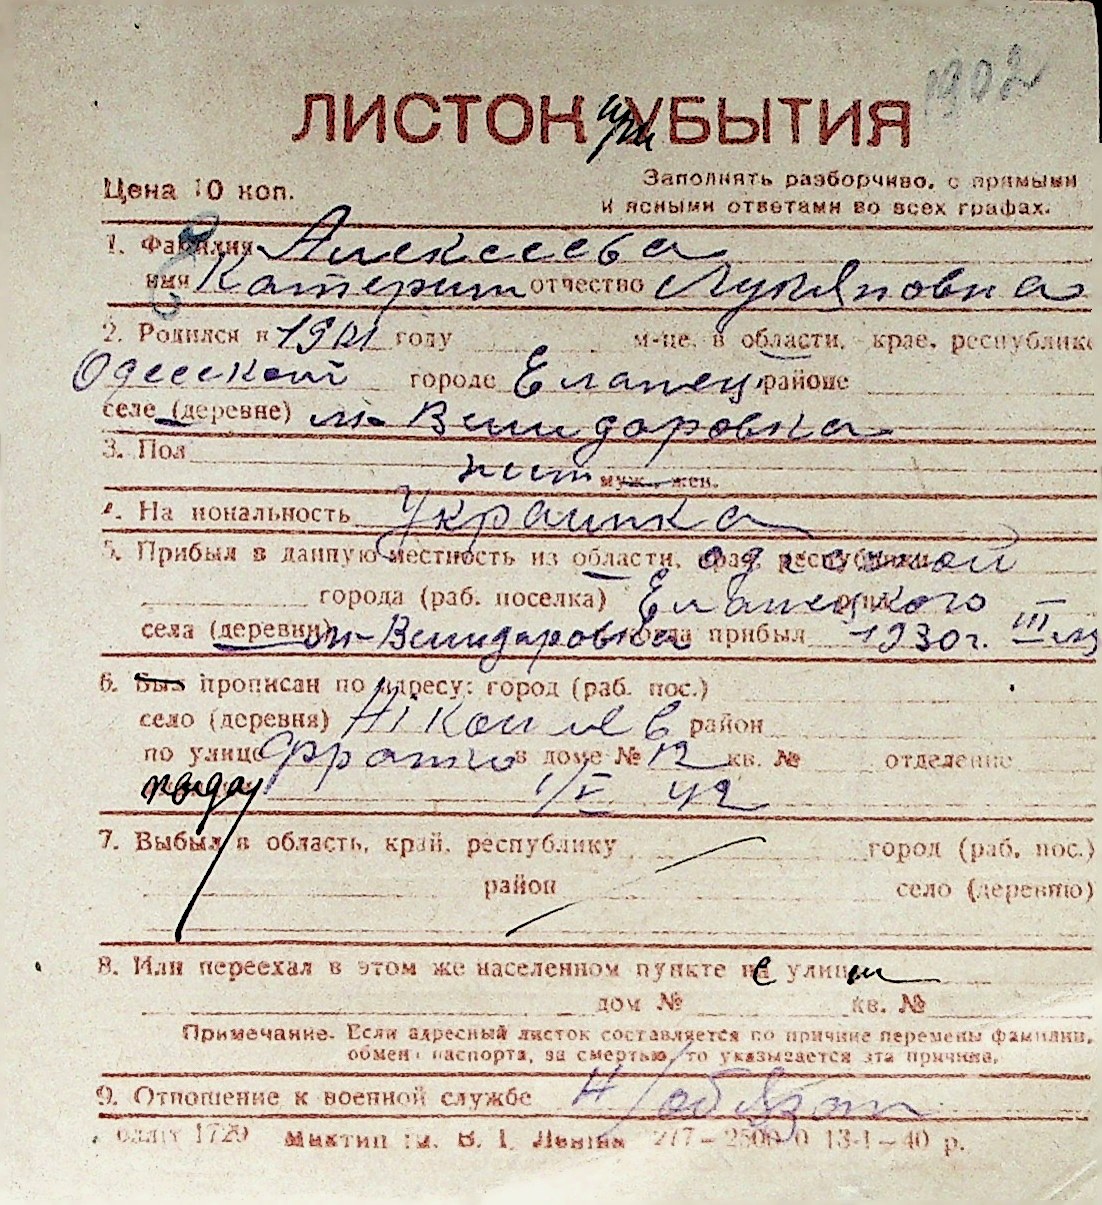 1902
ЛИСТОК при УБЫТИЯ
Цена 10 коп.
Заполнять разборчиво, с прямыми
и ясными ответами во всех графах.
1. Фамилия Алексеева
имя Катерина отчество Лукяновна
2. Родился в 1901 году м-це, в области, крае, республике
Одесской городе Еланец районе
селе (деревне) м-Вишдоровка
3. Пол жен муж., жен.
4. На иональность Украинка
5. Прибыл в данную местность из области, края, республики одесской
города (раб. поселка) Еланецкого
села (деревни) м-Вишдоровка когда прибыл 1930 г. III м
6. Был прописан по адресу: город (раб. пос.)
село (деревня) Ніколаев район
по улице Франко в доме № 12 кв. № отделение
1/V 42
7. Выбыл в область, край, республику город (раб. пос.)
район село (деревню)
8. Или переехал в этом же населенном пункте с улицы
дом № кв. №
Примечание. Если адресный листок составляется по причине перемены фамилии,
обмена паспорта, за смертью, то указывается эта причина.
9. Отношение к военной службе н/обязан
1729 Миктип ім. В. І. Леніна 277-2500 0 13-1-40 р.